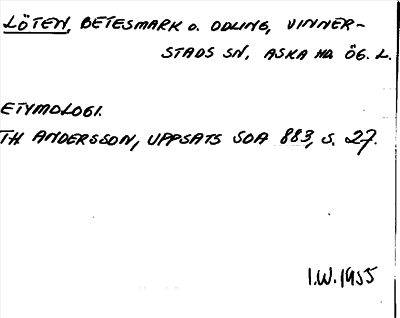 LÖTEN, BETESMARK O. ODLING, VINNER-
STADS SN, ASKA HD ÖG. L.
ETYMOLOGI.
TH ANDERSSON, UPPSATS SOA 883, S. 27.
I.W. 1955